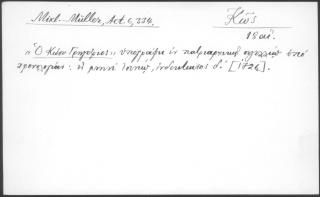 Mikl.-Müller, Act. 6, 334.
Κίος
18 αἰ.
"Ὁ Κίου Γρηγόριος" ὑπογράφει ἐν πατριαρχικῷ σιγιλλίῳ ὑπὸ
χρονολογίας: ἐν μηνὶ ἰουνίῳ, ἰνδικτιῶνος δ΄. [1726].